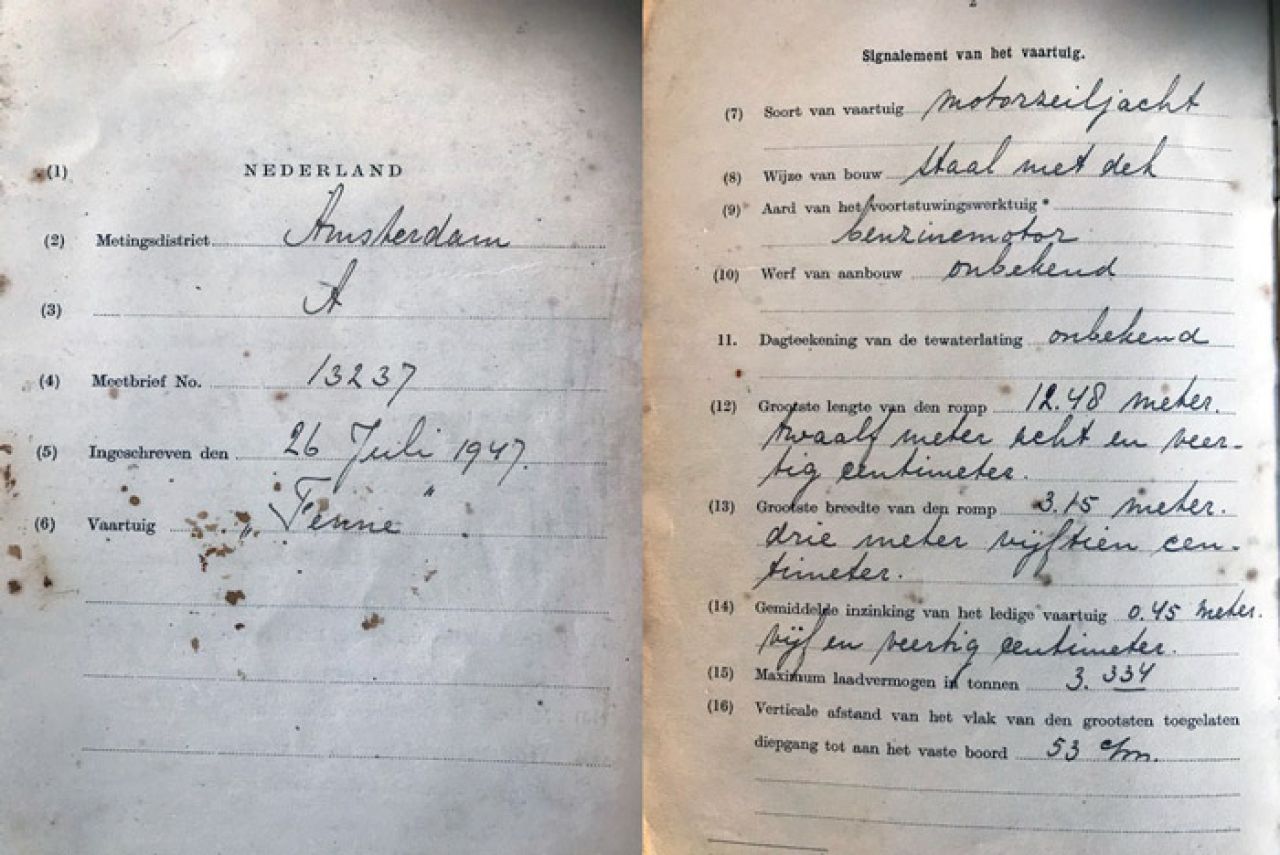 (1) NEDERLAND
(2) Metingsdistrict Amsterdam
(3) A
(4) Meetbrief No. 13237
(5) Ingeschreven den 26 Juli 1947.
(6) Vaartuig „ Fenne "
2
Signalement van het vaartuig.
(7) Soort van vaartuig motorzeiljacht
(8) Wijze van bouw staal met dek
(9) Aard van het voortstuwingswerktuig *
benzinemotor
(10) Werf van aanbouw onbekend
11. Dagteekening van de tewaterlating onbekend
(12) Grootste lengte van den romp 12.48 meter.
twaalf meter acht en veer-
tig centimeter.
(13) Grootste breedte van den romp 3.15 meter.
drie meter vijftien cen-
timeter.
(14) Gemiddelde inzinking van het ledige vaartuig 0.45 meter.
vijf en veertig centimeter.
(15) Maximum laadvermogen in tonnen 3.334
(16) Verticale afstand van het vlak van den grootsten toegelaten
diepgang tot aan het vaste boord 53 c/m.